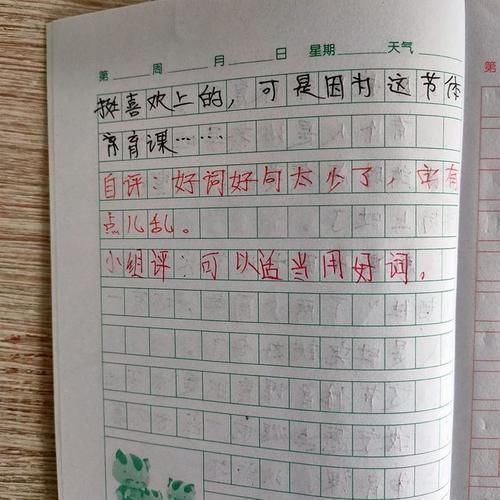 第 周 月 日 星期 天气
挺喜欢上的，可是因为这节体
育课……
自评：好词好句太少了，字有
点儿乱。
小组评：可以适当用好词。
第